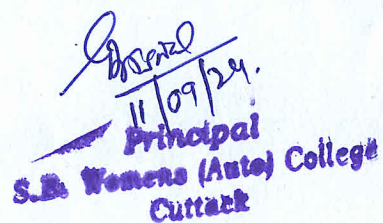 11/09/24.
Principal
S.B. Womens (Auto) College
Cuttack